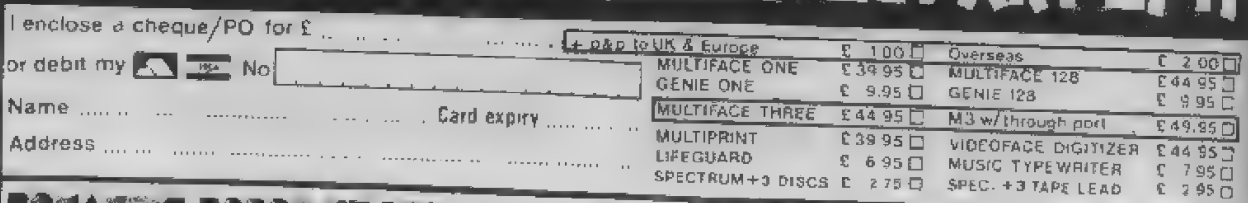 I enclose a cheque/PO for £
+ p&p to UK & Europe £ 1 00 Overseas £ 2 00
or debit my VISA No
MULTIFACE ONE £39 95 MULTIFACE 128 £44 95
GENIE ONE £ 9.95 GENIE 128 £ 9 95
Name Card expiry
MULTIFACE THREE £44 95 M3 w/through port £49.95
Address
MULTIPRINT £39 95 VIDEOFACE DIGITIZER £44 95
LIFEGUARD £ 6 95 MUSIC TYPEWRITER £ 7 95
SPECTRUM+3 DISCS £ 2 75 SPEC. +3 TAPE LEAD £ 2 95